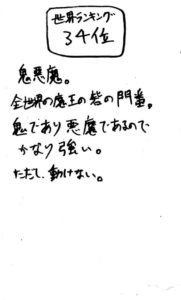 世界ランキング
34位
鬼悪魔。
全世界の魔王の砦の門番。
鬼であり悪魔であるので
かなり強い。
ただて、動けない。